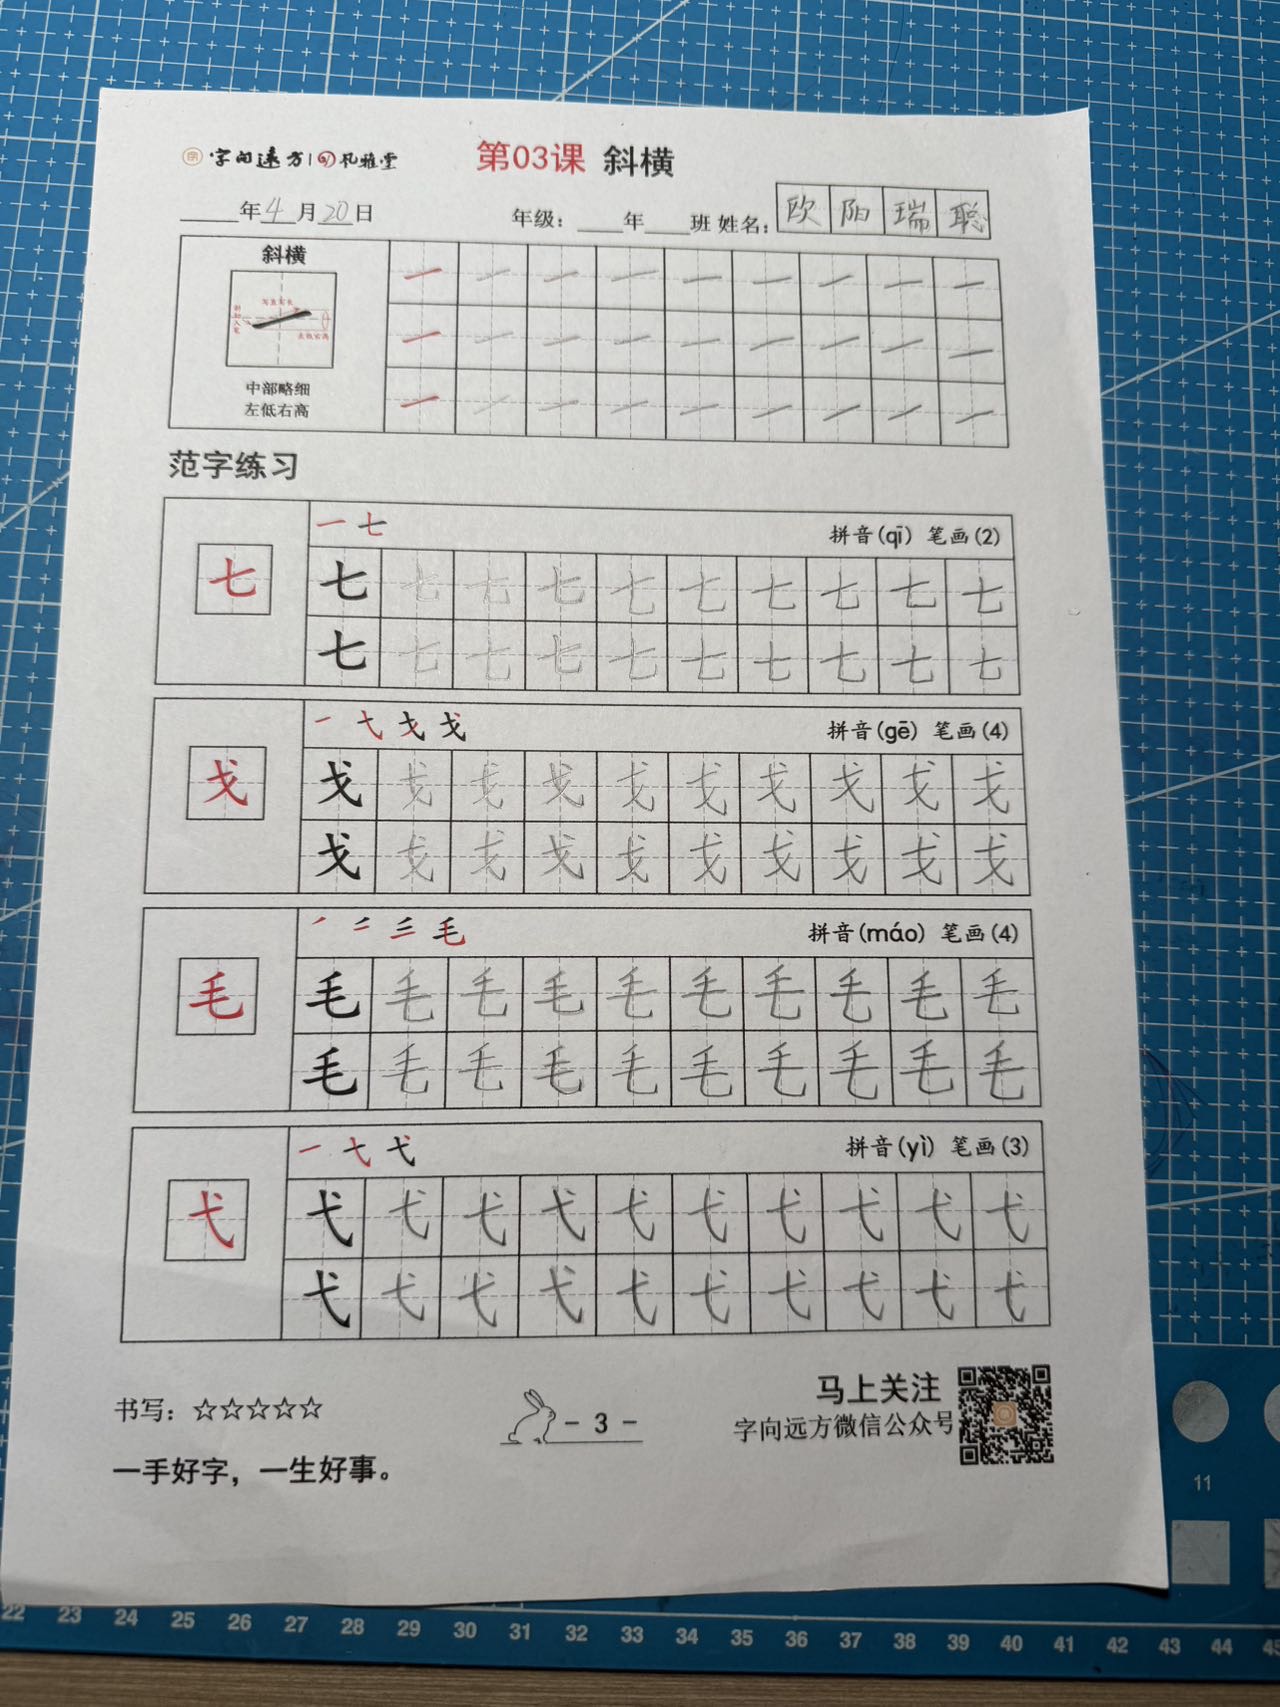 字向远方 | 札雅堂
第03课 斜横
年4月20日 年级：年班 姓名：欧阳瑞聪
斜横
左低右高
中部略细
左低右高
范字练习
一 七 拼音(qī) 笔画(2)
七 七 七 七 七 七 七 七 七 七 七
七 七 七 七 七 七 七 七 七 七
拼音(gē) 笔画(4)
戈 戈 戈 戈 戈 戈 戈 戈 戈 戈 戈
戈 戈 戈 戈 戈 戈 戈 戈 戈 戈
毛 拼音(máo) 笔画(4)
毛 毛 毛 毛 毛 毛 毛 毛 毛 毛 毛
毛 毛 毛 毛 毛 毛 毛 毛 毛 毛
一 弋 弋 拼音(yì) 笔画(3)
弋 弋 弋 弋 弋 弋 弋 弋 弋 弋 弋
弋 弋 弋 弋 弋 弋 弋 弋 弋 弋
书写：☆☆☆☆☆
- 3 -
马上关注
字向远方微信公众号
一手好字，一生好事。
11
22 23 24 25 26 27 28 29 30 31 32 33 34 35 36 37 38 39 40 41 42 43 44